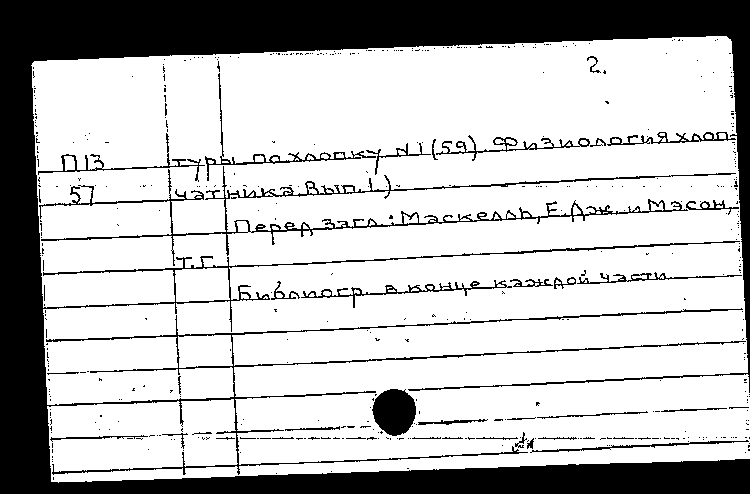 2.
П13 туры по хлопку N1(59). Физиология хлоп-
57 чатника. Вып. 1.).
Перед загл.: Маскелль, Е. Дж. и Мэсон,
Т.Г.
Библиогр. в конце каждой части